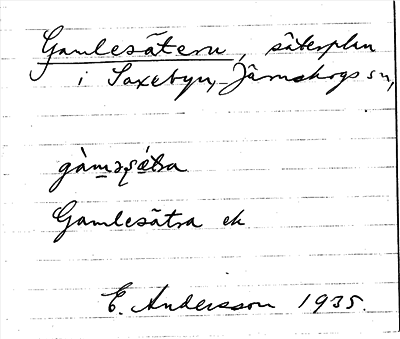 Gamlesätern, säterplan
i Saxebyn, Järnskogs sn,
Gamlesätra ek
E. Andersson 1935.